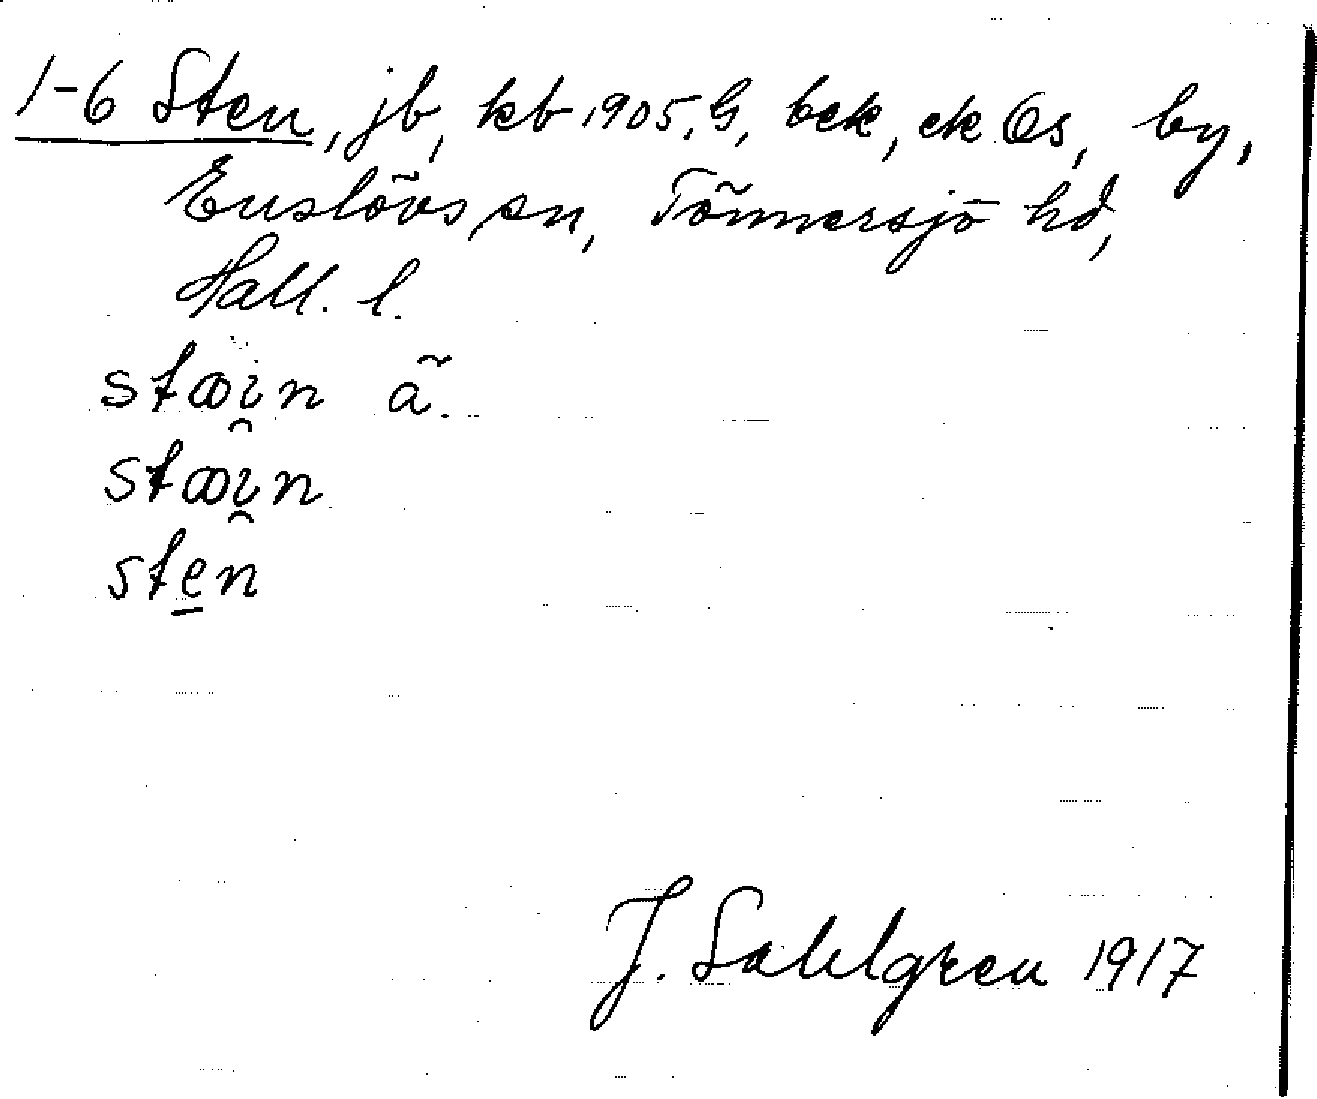 1-6 Sten, jb, kb 1905, G, bek, ek Ös, by,
Enslövs sn, Tönnersjö hd,
Hall. l.
stæi̯n ã.
stæi̯n
sten
J. Sahlgren 1917